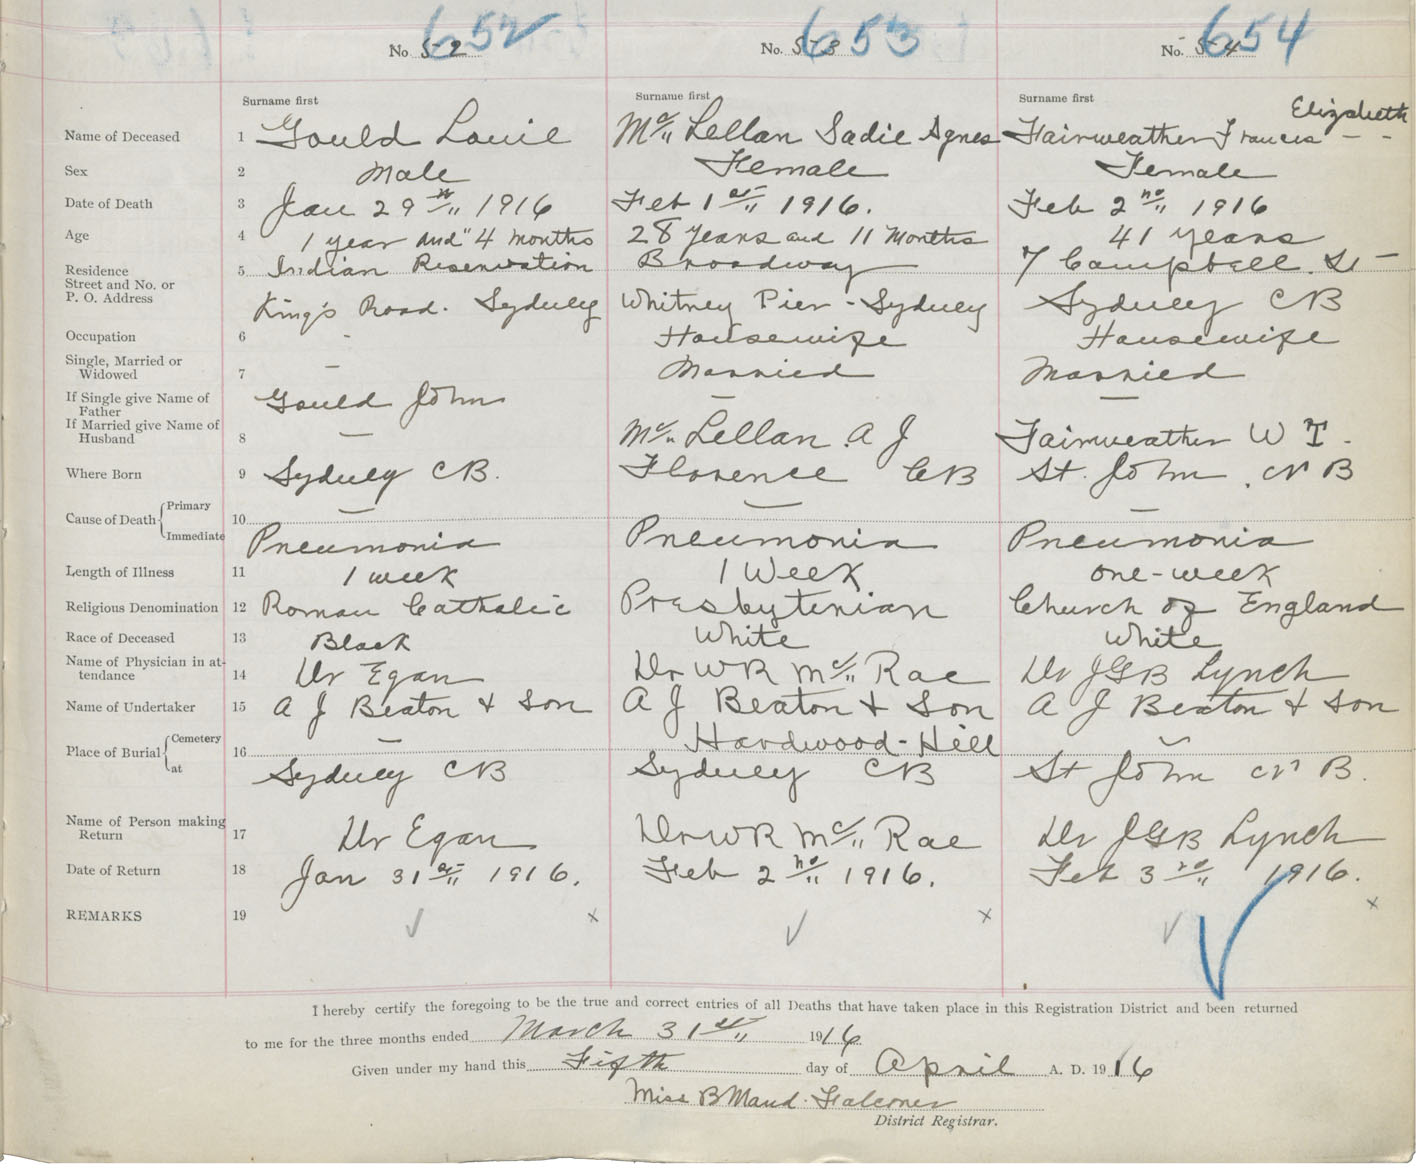 652 653 654
No 52 No. 53 No. 54
Surname first Surname first Surname first
Elizabeth
Name of Deceased 1 Gould Louie Mc Lellan Sadie Agnes Fairweather Frances
Sex 2 Male Female Female
Date of Death 3 Jan 29th 1916 Feb 1st 1916. Feb 2nd 1916
Age 4 1 year and 4 months 28 years and 11 Months 41 years
Residence 5 Indian Reservation Broadway 7 Campbell St
Street and No. or
P. O. Address King's Road. Sydney Whitney Pier - Sydney Sydney CB
Occupation 6 - Housewife Housewife
Single, Married or
Widowed 7 – Married Married
If Single give Name of
Father Gould John – –
If Married give Name of
Husband 8 – Mc Lellan A J Fairweather W T.
Where Born 9 Sydney CB. Florence CB St. John. N B
Cause of Death { Primary 10 – – –
Immediate Pneumonia Pneumonia Pneumonia
Length of Illness 11 1 week 1 Week one-week
Religious Denomination 12 Roman Catholic Presbyterian Church of England
Race of Deceased 13 Black White White
Name of Physician in at-
tendance 14 Dr Egan Dr W R Mc Rae Dr J G B Lynch
Name of Undertaker 15 A J Beaton + Son A J Beaton + Son A J Beaton + Son
Place of Burial { Cemetery 16 – Hardwood-Hill –
at Sydney CB Sydney CB St John N B.
Name of Person making
Return 17 Dr Egan Dr W R Mc Rae Dr J G B Lynch
Date of Return 18 Jan 31st 1916. Feb 2nd 1916. Feb 3rd 1916.
REMARKS 19 ✓ x ✓ x ✓ x
I hereby certify the foregoing to be the true and correct entries of all Deaths that have taken place in this Registration District and been returned
to me for the three months ended March 31st 1916
Given under my hand this Fifth day of April A. D. 1916
Miss B Maud Falconer
District Registrar.